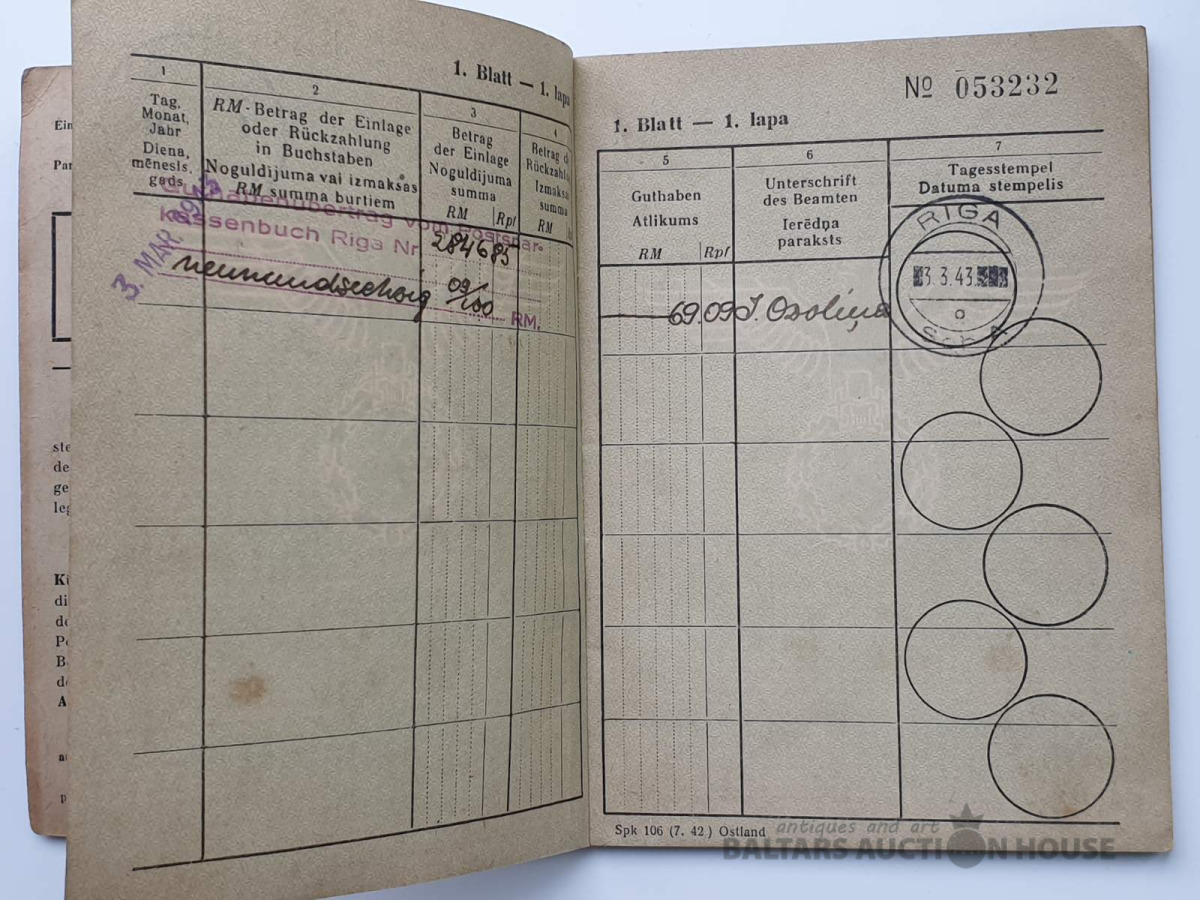 1. Blatt — 1. lapa
1
Tag,
Monat,
Jahr
Diena,
mēnesis,
gads
2
RM-Betrag der Einlage
oder Rückzahlung
in Buchstaben
Noguldījuma vai izmaksas
RM summa burtiem
3
Betrag
der Einlage
Noguldījuma
summa
RM Rpf
4
Betrag d
Rückzahlu
Izmaks
summa
RM
Guthabenübertrag vom Postspar-
kassenbuch Riga Nr. 284685
3. MAR. 1943
neunundsechzig 09/100 RM.
Nº 053232
1. Blatt — 1. lapa
5
Guthaben
Atlikums
RM Rpf
6
Unterschrift
des Beamten
Ierēdņa
paraksts
7
Tagesstempel
Datuma stempelis
69.09 J. Osoliņa
RIGA
3.3.43
a
Sch A
Spk 106 (7. 42) Ostland
Ein
Par
ste
de
ge
leg
Kü
di
de
Po
B
de
A
antiques and art
BALTARS AUCTION HOUSE